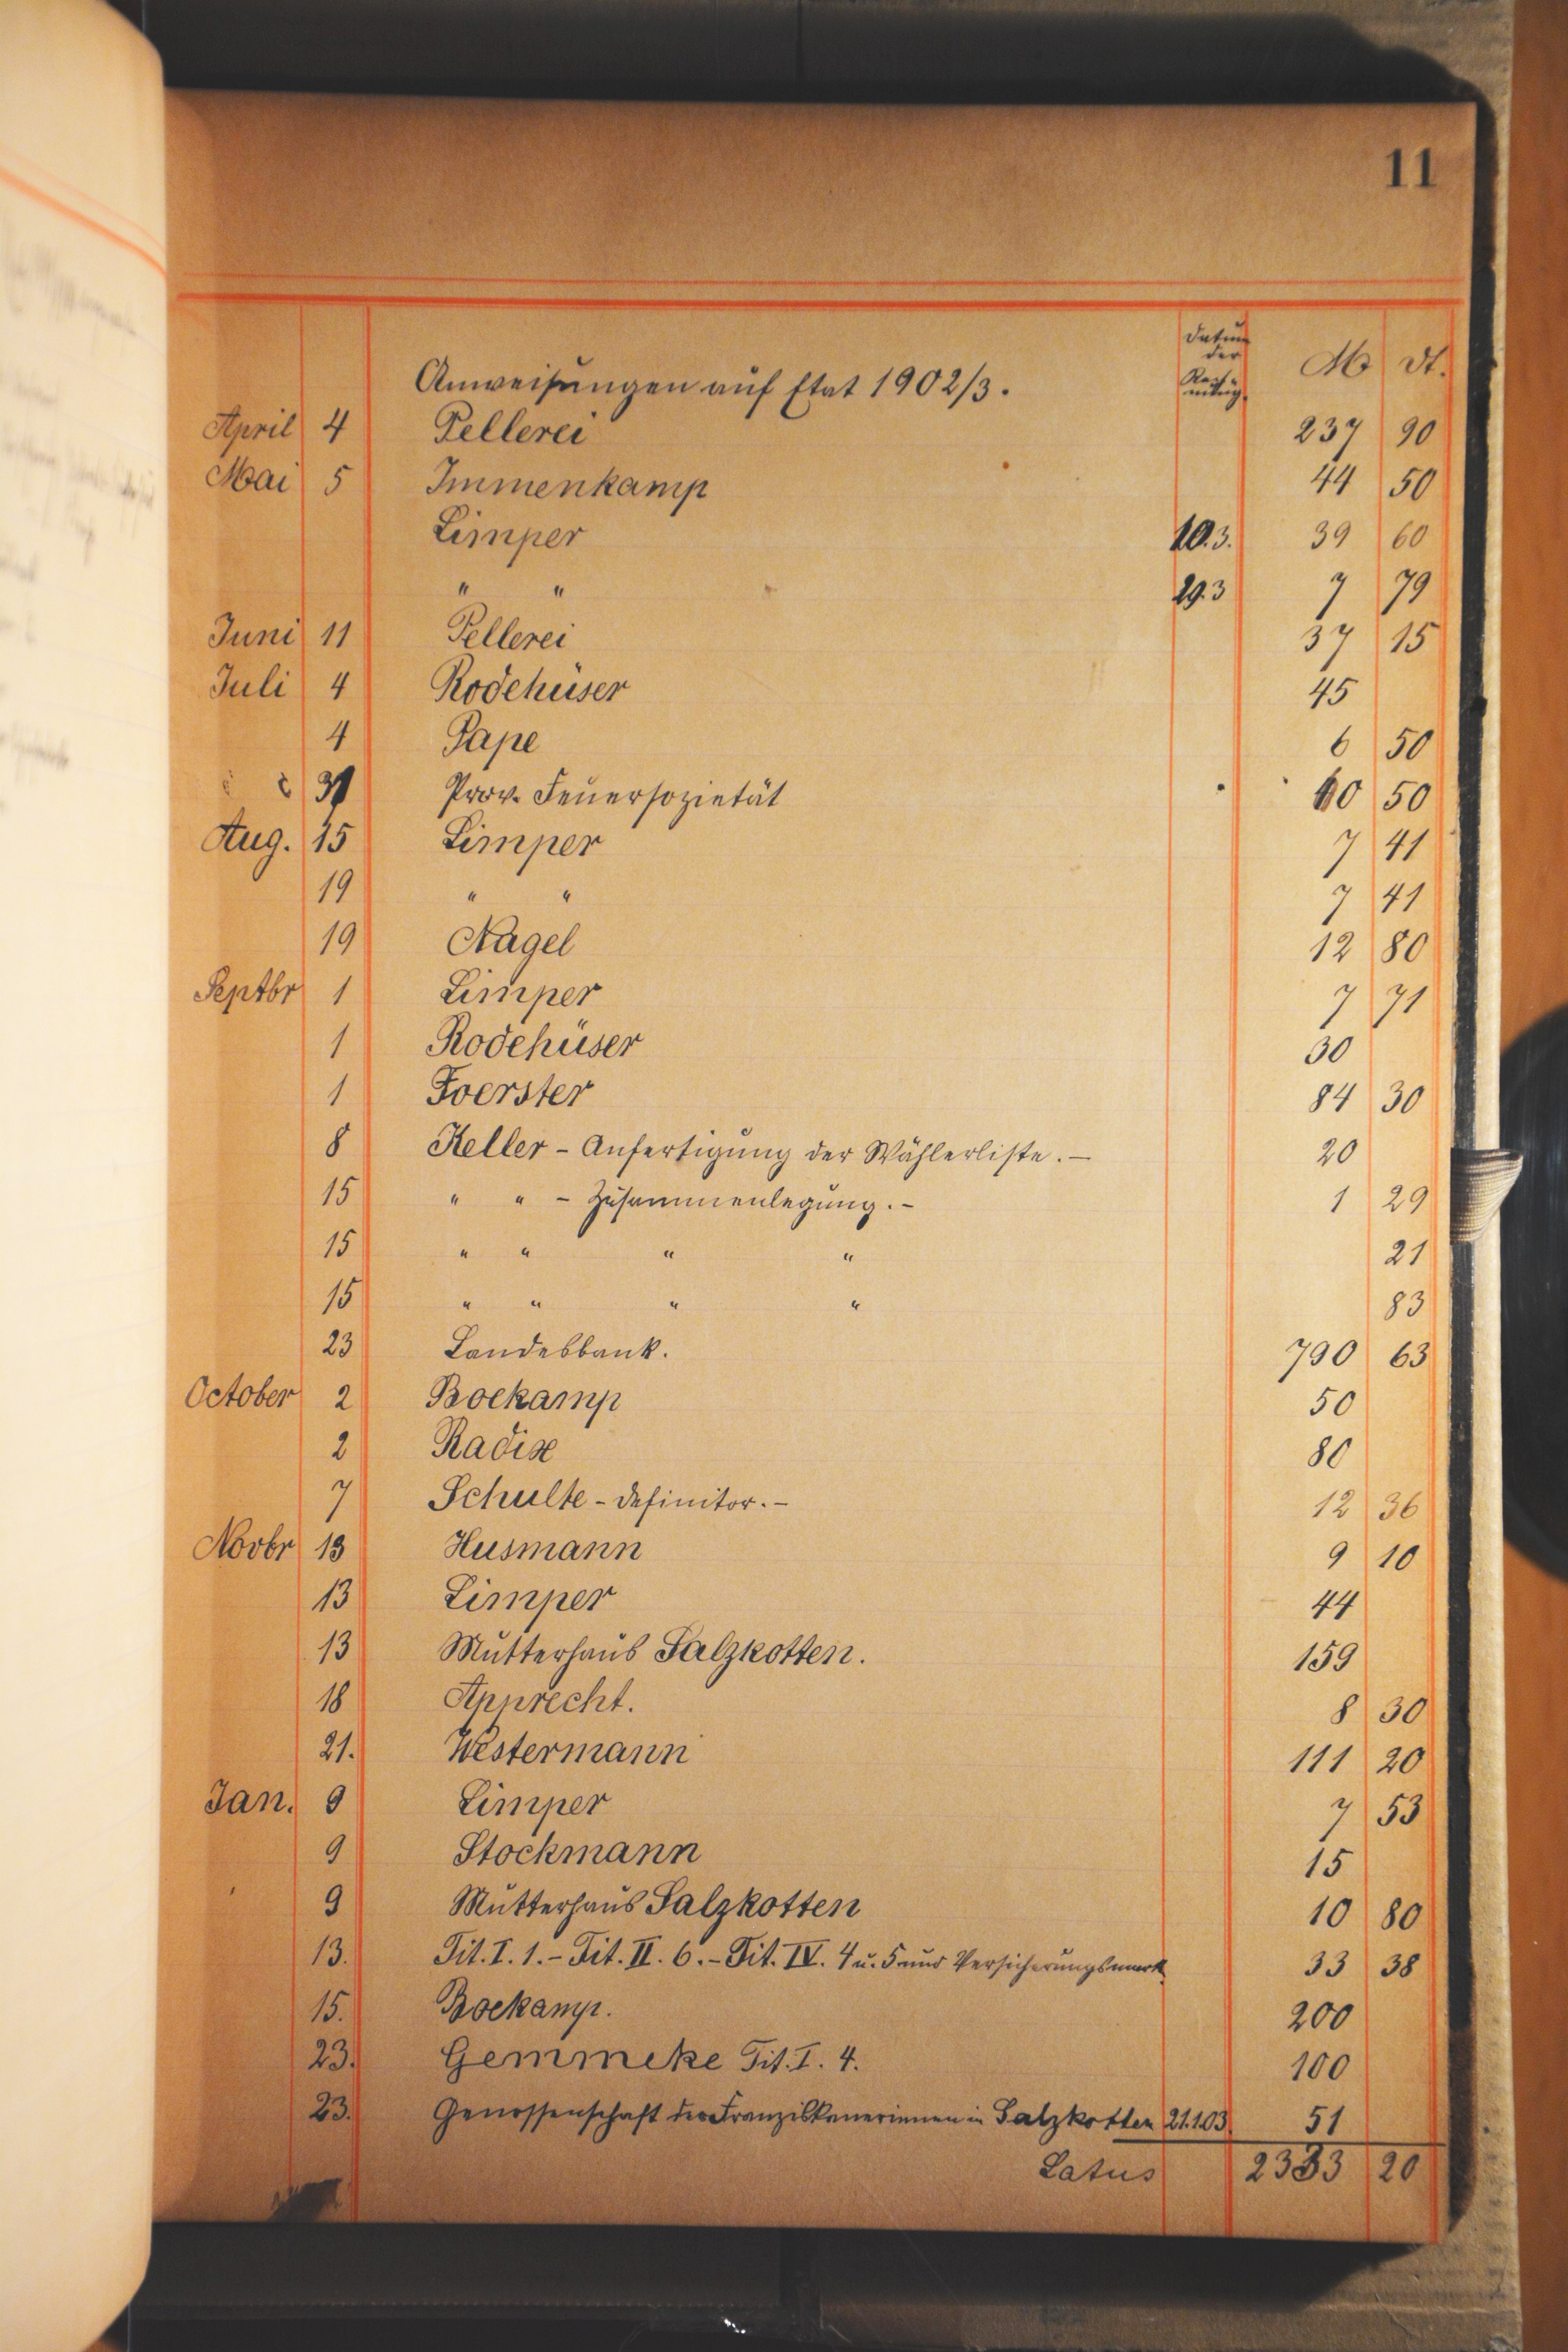 11
Datum der
M dt.
Anweisungen auf Etat 1902/3.
April 4 Pellerei 237 90
Mai 5 Immenkamp 44 50
Limper 10.3. 39 60
" " 29.3 7 79
Juni 11 Pellerei 37 15
Juli 4 Rodehüser 45
4 Pape 6 50
31 Prov. Feuersozietät 60 50
Aug. 15 Limper 7 41
19 " " 7 41
19 Nagel 12 80
Septbr 1 Limper 7 71
1 Rodehüser 30
1 Foerster 84 30
8 Keller - Anfertigung der Wählerliste. - 20
15 " " - Zusammenlegung. - 1 29
15 " " " " 21
15 " " " " 83
23 Landesbank. 790 63
October 2 Boekamp 50
2 Radix 80
7 Schulte - Definitor. - 12 36
Novbr 13 Husmann 9 10
13 Limper 44
13 Mutterhaus Salzkotten. 159
18 Apprecht. 8 30
21. Westermann 111 20
Jan. 9 Limper 7 53
9 Stockmann 15
9 Mutterhaus Salzkotten 10 80
13. Tit. I. 1. - Tit. II. 6. - Tit. IV. 4 u. 5 und Versicherungsmark 33 38
15. Boekamp. 200
23. Gemmeke Tit. I. 4. 100
23. Genossenschaft der Franziskanerinnen in Salzkotten 21.1.03 51
Latus 2333 20